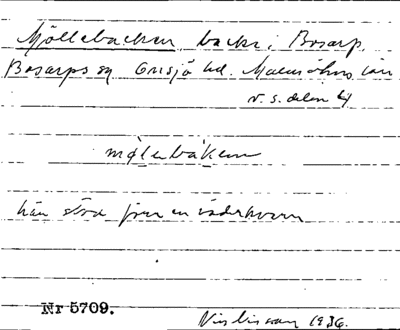 Möllebacken backe i Bosarp,
Bosarps sn Onsjö hd. Malmöhus län
v. s. delen 4
mølebákenn
här stod förr en väderkvarn
Nr 5709.
1936.